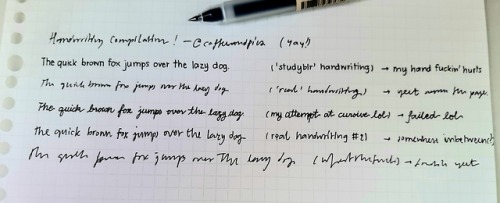 Handwriting Compilation! - @coffeeandpies (yay!)
The quick brown fox jumps over the lazy dog. ('studyblr' handwriting) → my hand fuckin' hurts
The quick brown fox jumps over the lazy dog. ('real' handwriting) → yeet across the page.
The quick brown fox jumps over the lazy dog. (my attempt at cursive lol) → failed lol
The quick brown fox jump over the lazy dog. (real handwriting #2) → somewhere inbetween
The quick brown fox jumps over the lazy dog (what the fuck) → yeet